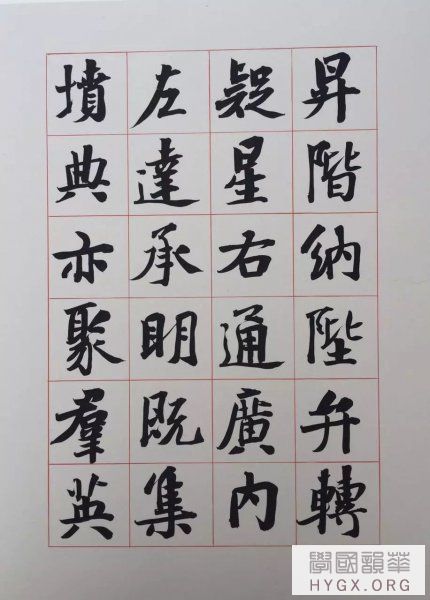 昇階納陛弁轉
疑星右通廣內
左達承明既集
墳典亦聚羣英
華韻國學
HYGX.ORG